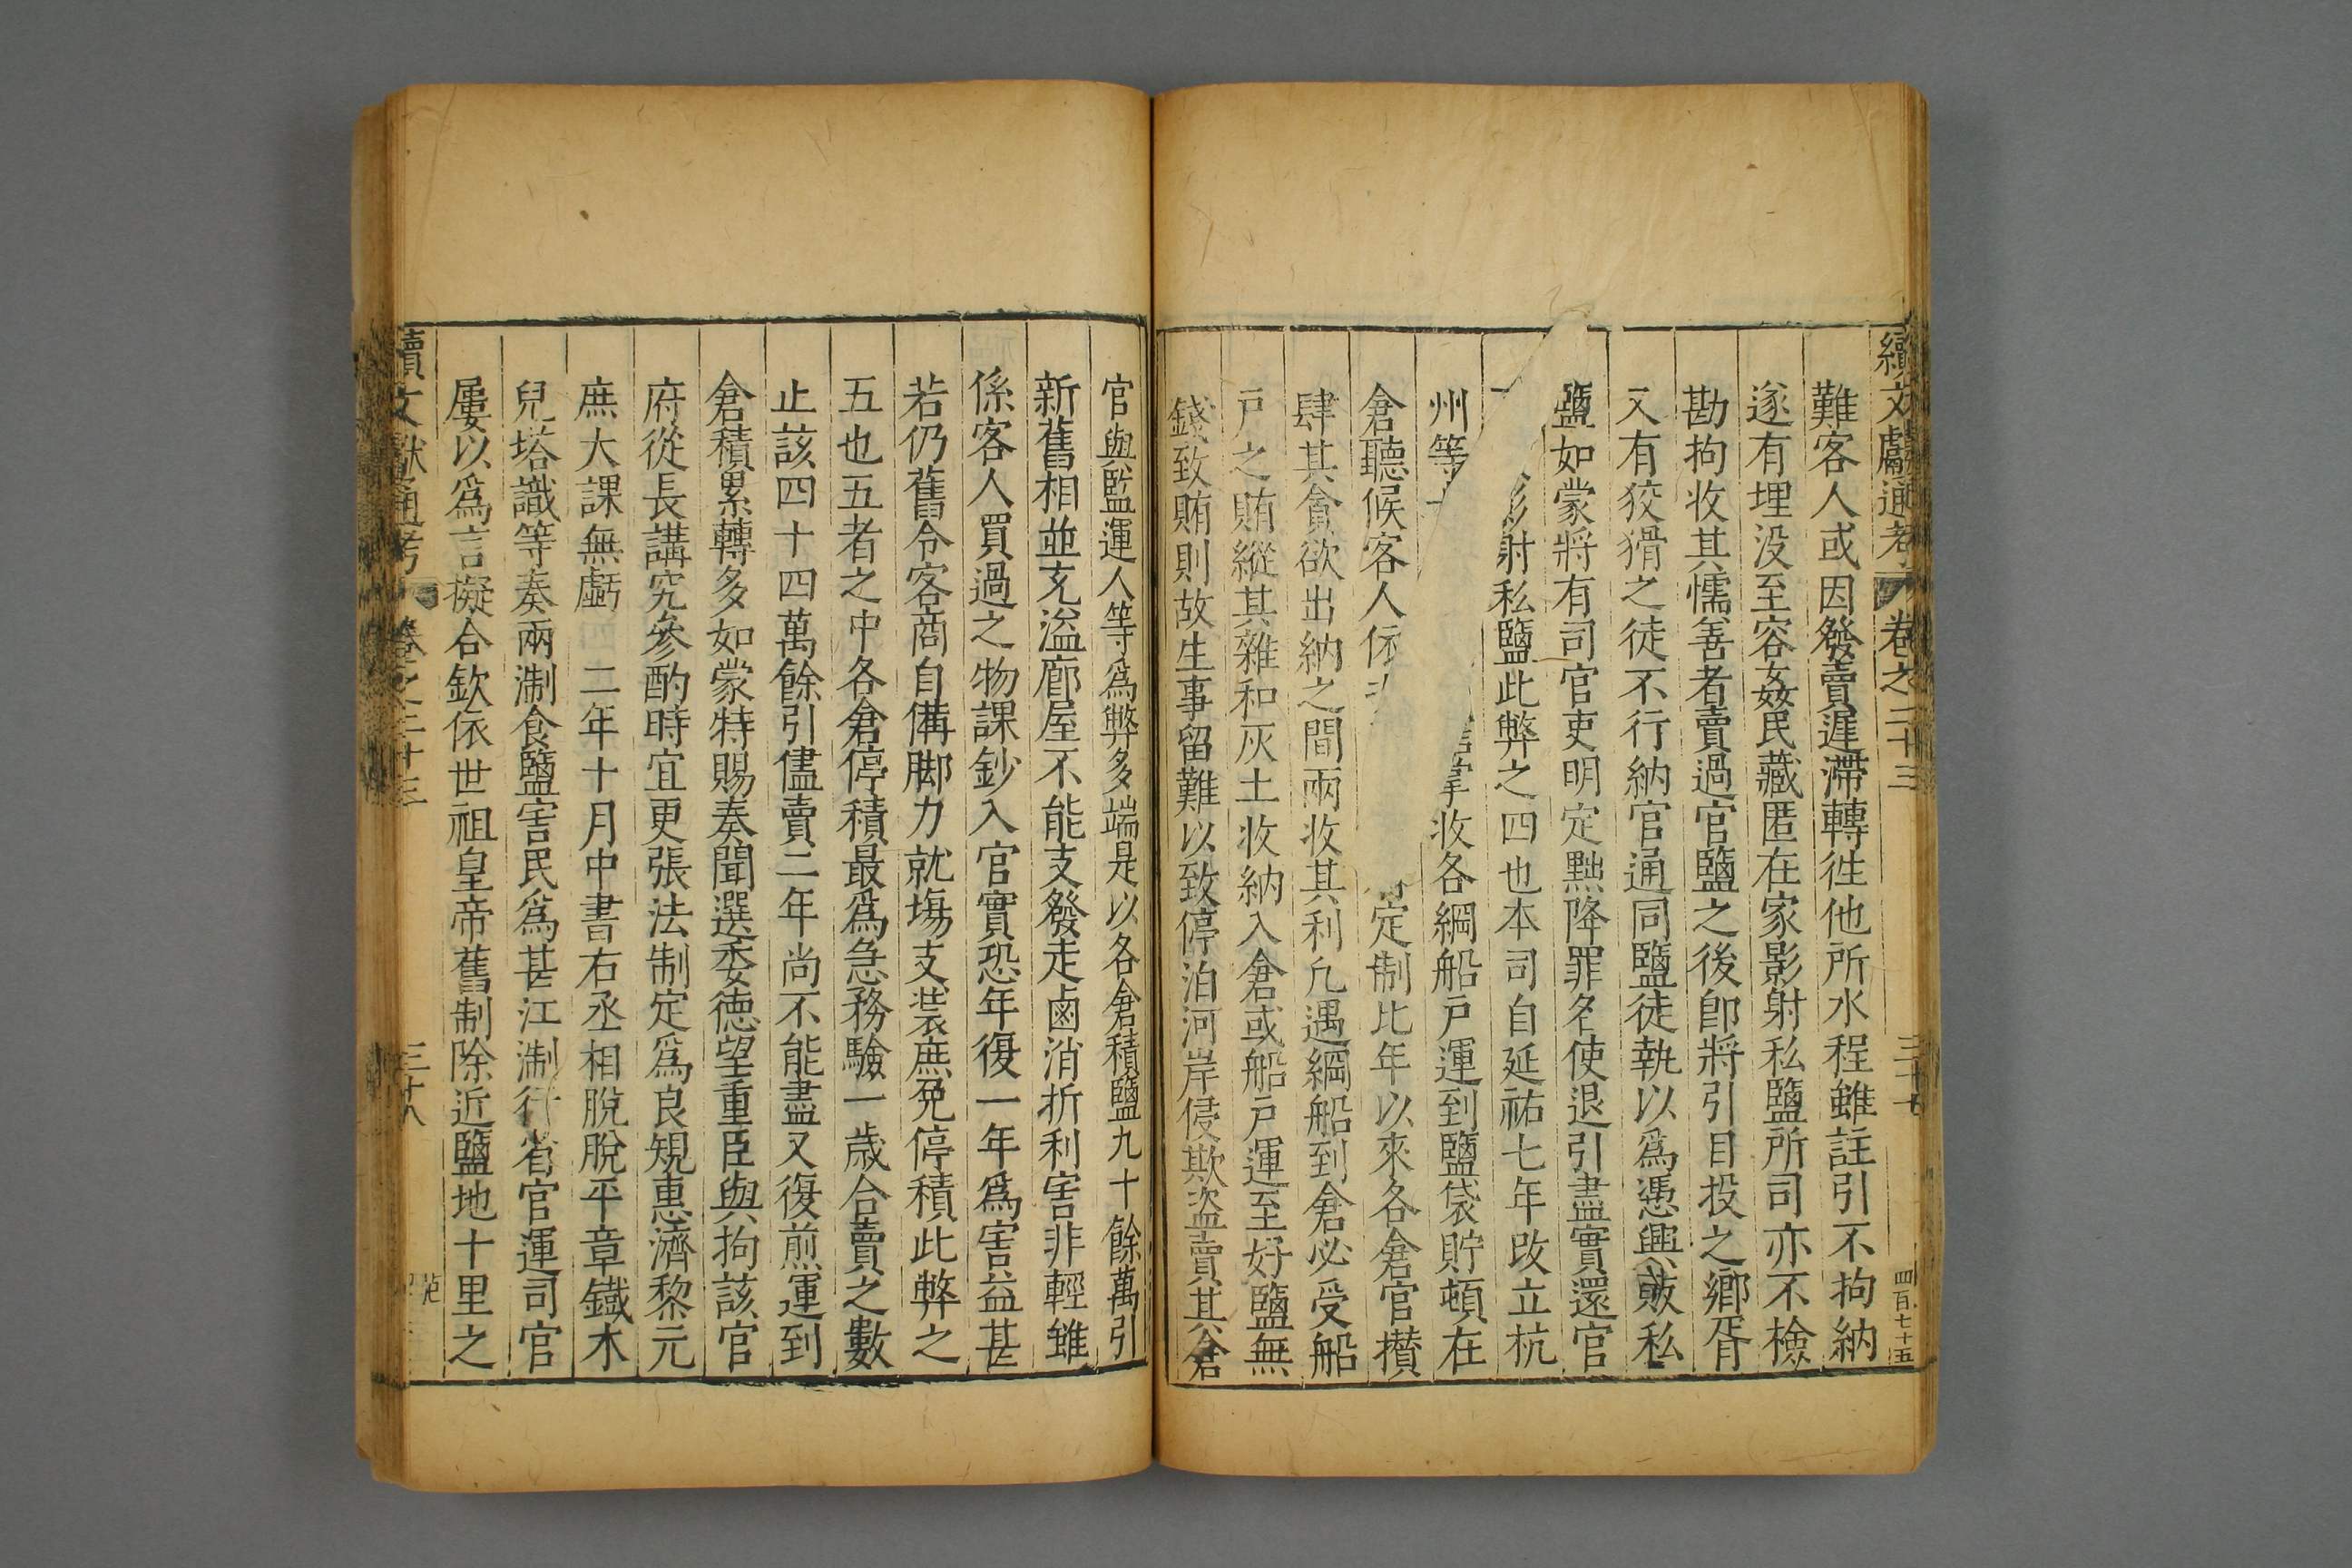 續文獻通考 卷之二十三 三十七 四百七十五
難客人或因發賣遲滯轉徃他所水程雖註引不拘納
遂有埋没至容姦民藏匿在家影射私鹽所司亦不檢
勘拘收其懦善者賣過官鹽之後即將引目投之鄉胥
又有狡猾之徒不行納官通同鹽徒執以爲憑興販私
鹽如蒙將有司官吏明定黜降罪名使退引盡實還官
影射私鹽此弊之四也本司自延祐七年改立杭
州等 掌收各綱船戶運到鹽袋貯頓在
倉聽候客人依 定制比年以來各倉官攢
肆其貪欲出納之間兩收其利凡遇綱船到倉必受船
戶之賄縱其雜和灰土收納入倉或船戶運至好鹽無
錢致賄則故生事留難以致停泊河岸侵欺盜賣其倉
官與監運人等爲弊多端是以各倉積鹽九十餘萬引
新舊相並充溢廊屋不能支發走鹵消折利害非輕雖
係客人買過之物課鈔入官實恐年復一年爲害益甚
若仍舊令客商自備脚力就塲支裝庶免停積此弊之
五也五者之中各倉停積最爲急務驗一歲合賣之數
止該四十四萬餘引儘賣二年尚不能盡又復煎運到
倉積累轉多如蒙特賜奏聞選委德望重臣與拘該官
府從長講究參酌時宜更張法制定爲良規惠濟黎元
庶大課無虧 二年十月中書右丞相脫脫平章鐵木
兒塔識等奏兩淛食鹽害民爲甚江淛行省官運司官
屢以爲言擬合欽依世祖皇帝舊制除近鹽地十里之
續文獻通考 卷之二十三 三十八